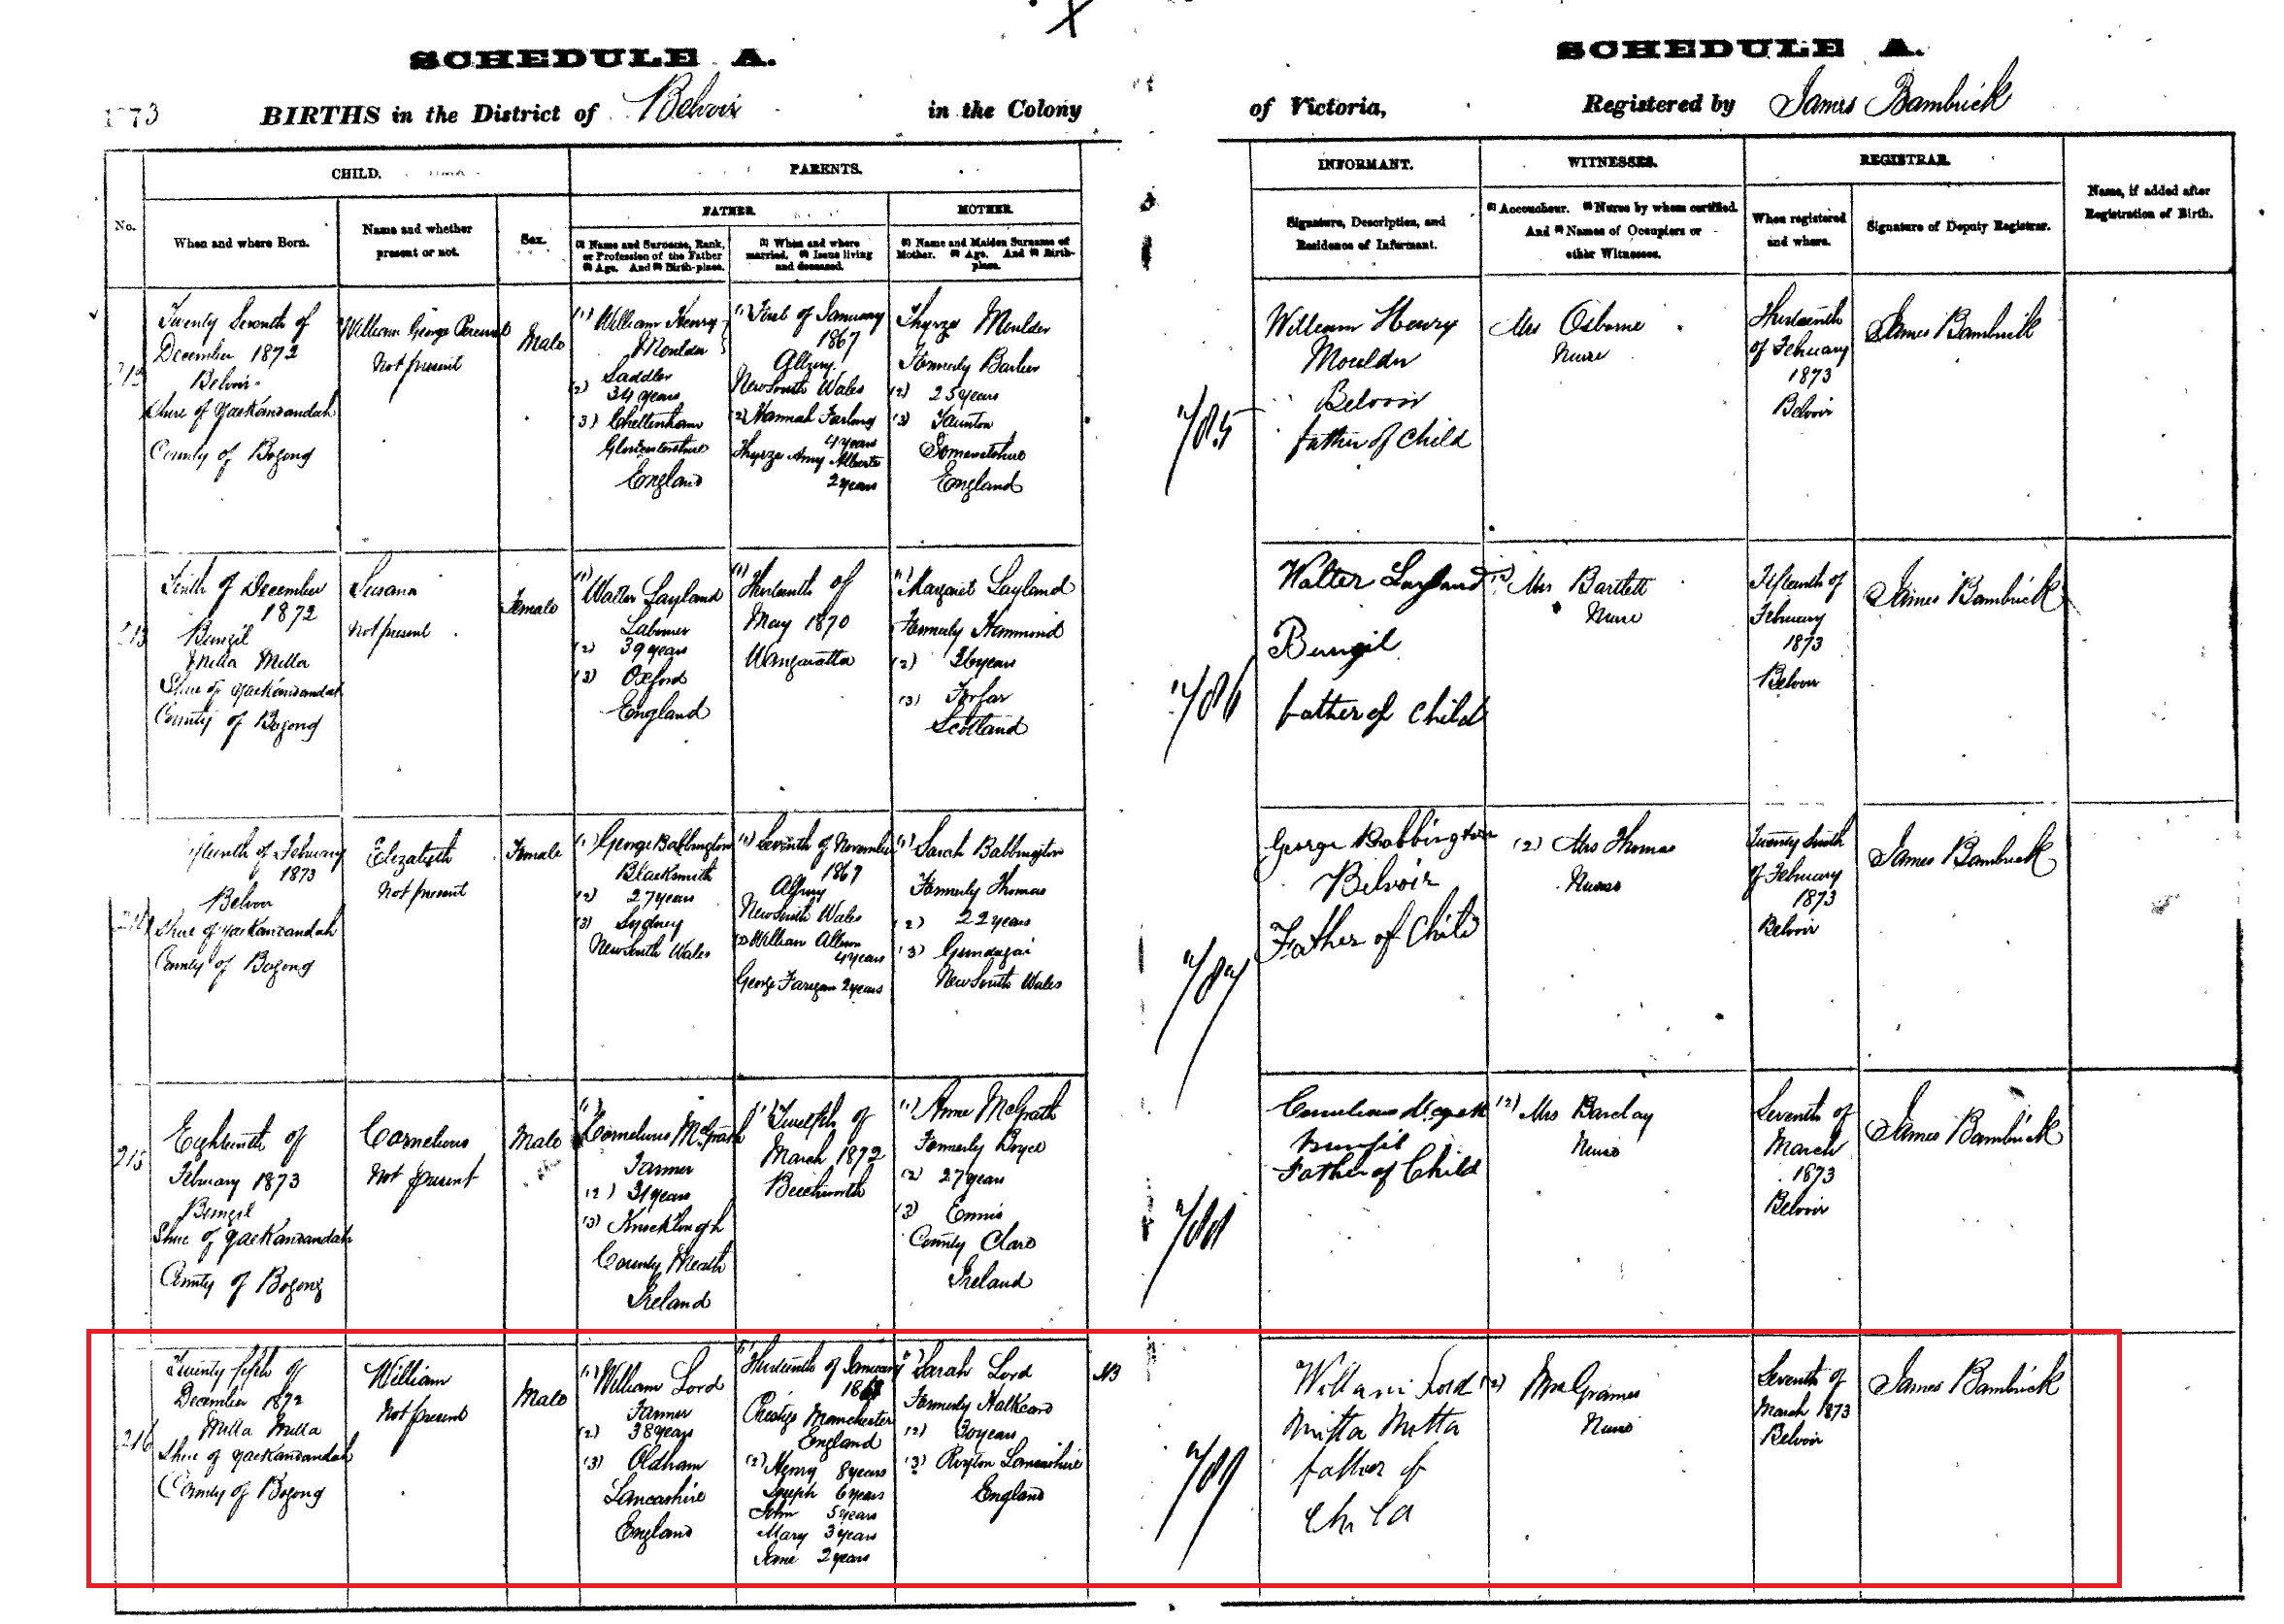 SCHEDULE A.
SCHEDULE A.
1873 BIRTHS in the District of Belvoir in the Colony
of Victoria, Registered by James Bambrick
No.
CHILD.
When and where Born.
Name and whether
present or not.
Sex.
PARENTS.
FATHER.
(1) Name and Surname, Rank,
or Profession of the Father
(2) Age. And (3) Birth-place.
(1) When and where
married. (2) Issue living
and deceased.
MOTHER.
(1) Name and Maiden Surname of
Mother. (2) Age. And (3) Birth-
place.
INFORMANT.
Signature, Description, and
Residence of Informant.
WITNESSES.
(1) Accoucheur. (2) Nurse by whom certified.
And (3) Names of Occupiers or
other Witnesses.
REGISTRAR.
When registered
and where.
Signature of Deputy Registrar.
Name, if added after
Registration of Birth.
Twenty Seventh of
December 1872
Belvoir
Shire of Yackandandah
County of Bogong
William George Percival
Not present
Male
(1) William Henry
Moulder
Saddler
(2) 34 years
(3) Cheltenham
Gloucestershire
England
(1) First of January
1867
Albury
New South Wales
(2) Hannah
4 years
Thyrza Amy Alberta
2 years
Thyrza Moulder
Formerly Barber
(2) 25 years
(3) Taunton
Somersetshire
England
William Henry
Moulder
Belvoir
father of child
Mrs Osborne
Nurse
Thirteenth
of February
1873
Belvoir
James Bambrick
213
Tenth of December
1872
Bungil
Mitta Mitta
Shire of Yackandandah
County of Bogong
Susana
Not present
Female
(1) Walter Layland
Labourer
(2) 39 years
(3) Oxford
England
(1) Thirteenth of
May 1870
Wangaratta
(1) Margaret Layland
Formerly Hammond
(2) 36 years
(3) Forfar
Scotland
Walter Layland
Bungil
father of child
(2) Mrs Bartlett
Nurse
Fifteenth of
February
1873
Belvoir
James Bambrick
214
of February
1873
Belvoir
Shire of Yackandandah
County of Bogong
Elizabeth
Not present
Female
(1) George Babbington
Blacksmith
(2) 27 years
(3) Sydney
New South Wales
(1) Seventh of November
1867
Albury
New South Wales
(2) William
4 years
George 2 years
(1) Sarah Babbington
Formerly Thomas
(2) 22 years
(3) Gundagai
New South Wales
George Babbington
Belvoir
Father of Child
(2) Mrs Thomas
Nurse
Twenty
of February
1873
Belvoir
James Bambrick
215
Eighteenth of
February 1873
Bungil
Shire of Yackandandah
County of Bogong
Cornelious
Not present
Male
(1)
Cornelious McGrath
Farmer
(2) 31 years
(3)
County Meath
Ireland
(1) Twelfth of
March 1872
Beechworth
(1) Anne McGrath
Formerly Boyce
(2) 27 years
(3) Ennis
County Clare
Ireland
Bungil
Father of Child
(2) Mrs Barclay
Nurse
Seventh of
March
1873
Belvoir
James Bambrick
216
Twenty fifth of
December 1872
Mitta Mitta
Shire of Yackandandah
County of Bogong
William
Not present
Male
(1) William Lord
Farmer
(2) 38 years
(3) Oldham
Lancashire
England
(1) Thirteenth of January
Manchester
England
(2) Henry 8 years
Joseph 6 years
John 5 years
Mary 3 years
Jane 2 years
(1) Sarah Lord
Formerly
(2) 30 years
(3) Royton Lancashire
England
William Lord
Mitta Mitta
father of
child
(2) Mrs
Nurse
Seventh of
March 1873
Belvoir
James Bambrick